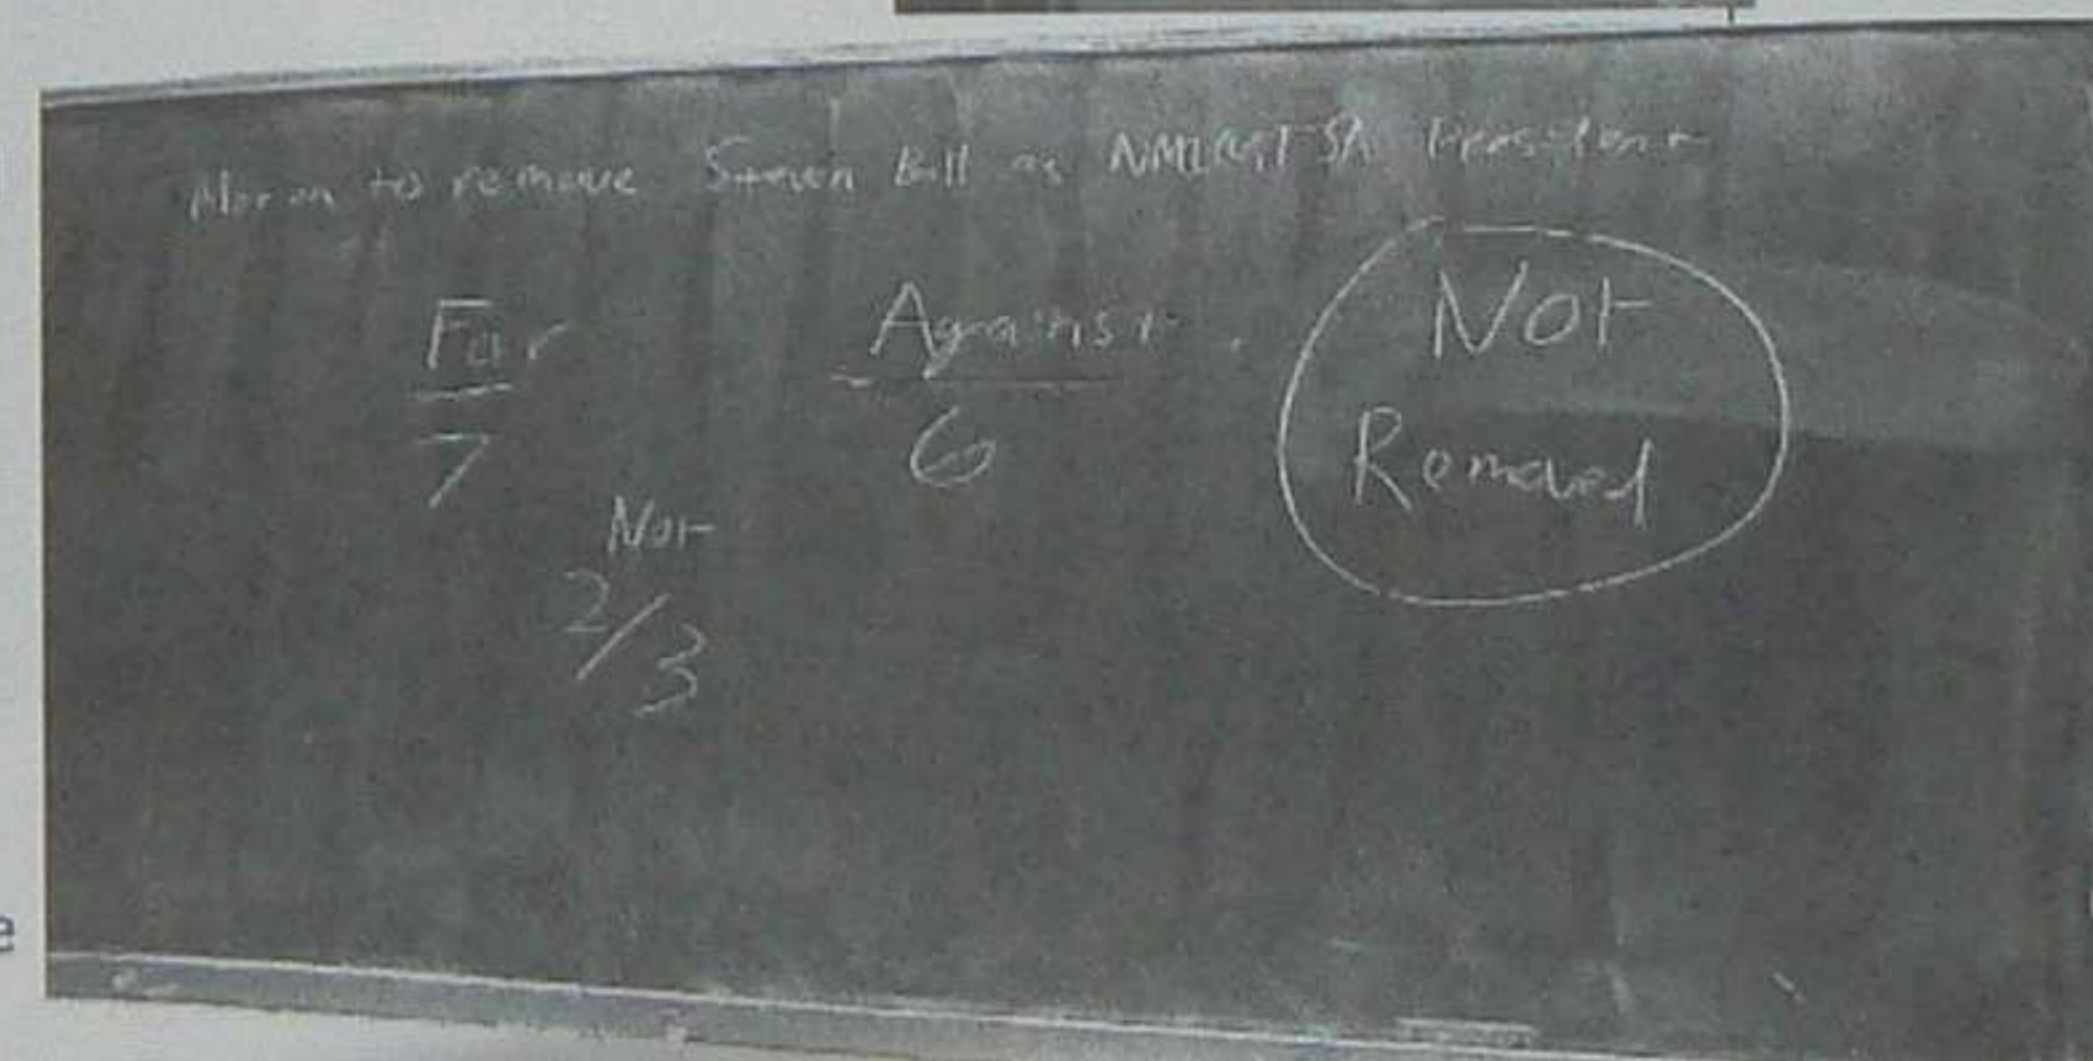 Motion to remove Steven Ball as President
For
Against
Not
Removed
7
6
Not
2/3
e